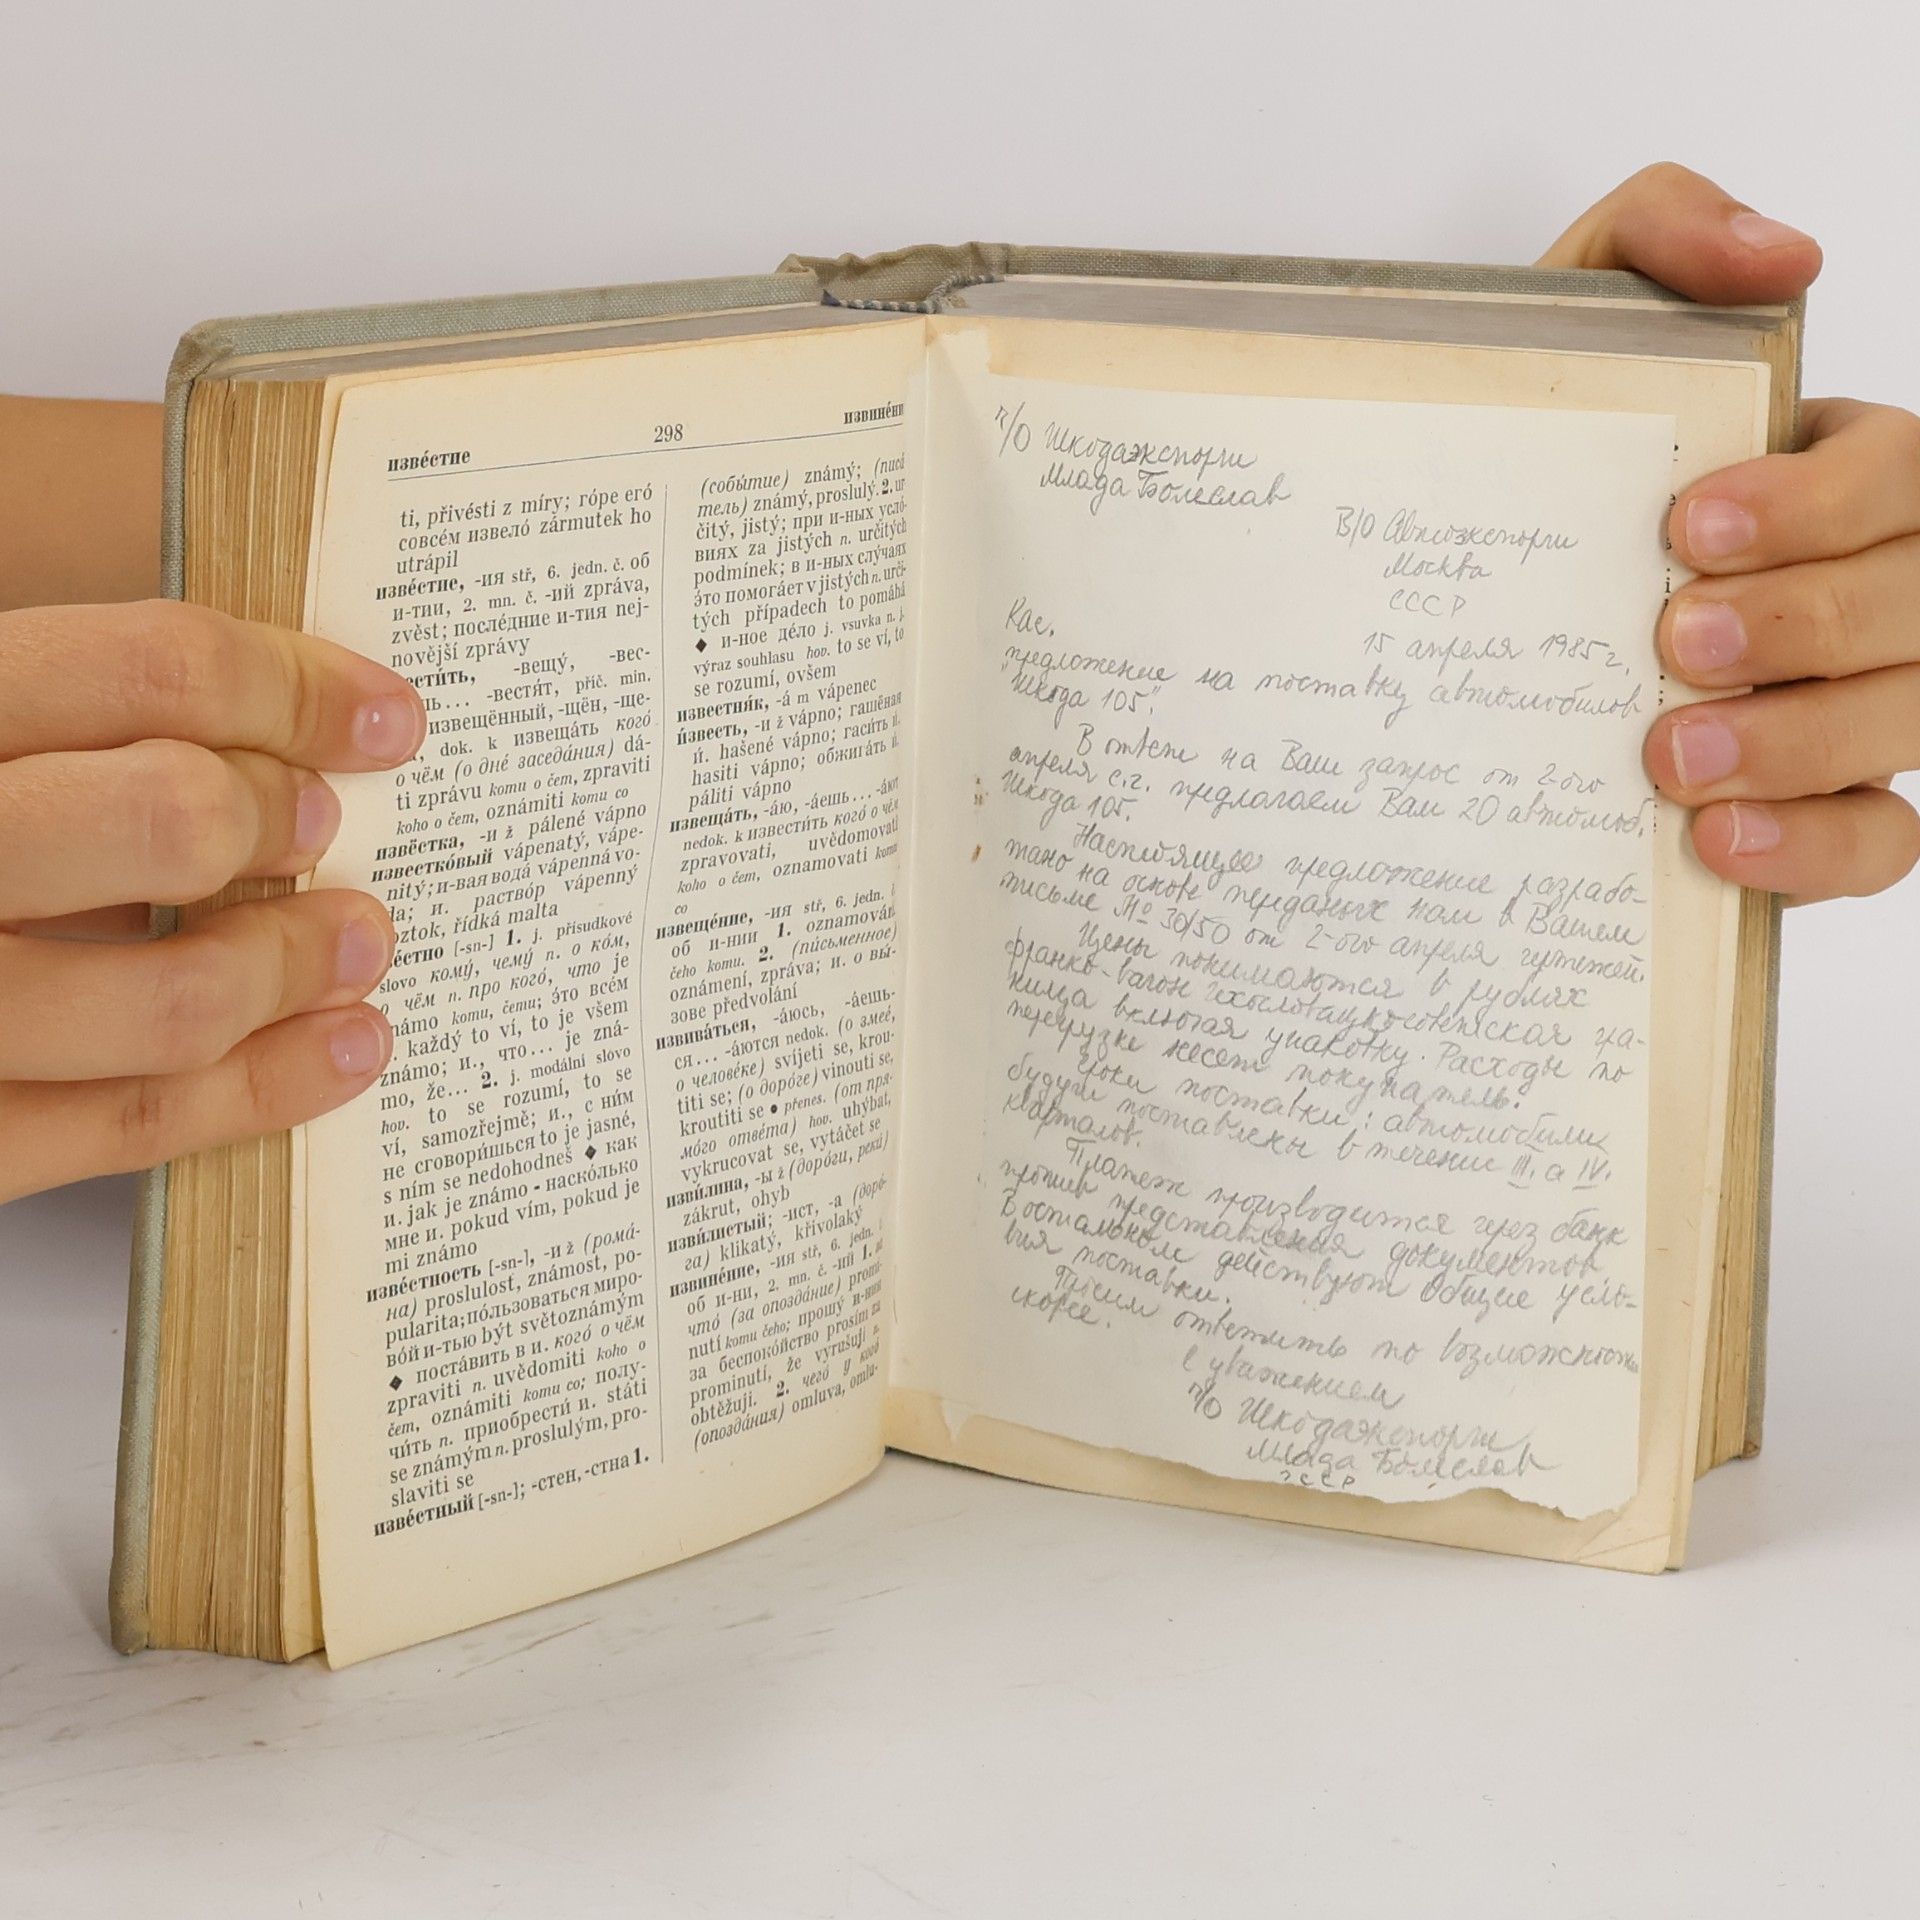 извéстие
298
извинéни
ti, přivésti z míry; гóре егó
совсéм извелó zármutek ho
utrápil
извéстие, -ия stř, 6. jedn. č. об
и-тии, 2. mn. č. -ий zpráva,
zvěst; послéдние и-тия nej-
novější zprávy
-вещý, -вес-
-вестя́т, příč. min.
извещённый, -щён, -ще-
dok. k извещáть когó
о чём (о дне заседáния) dá-
ti zprávu komu o čem, zpraviti
koho o čem, oznámiti komu co
извёстка, -и ž pálené vápno
известкóвый vápenatý, vápe-
nitý; и-вая водá vápenná vo-
da; и. раствóр vápenný
roztok, řídká malta
[-sn-] 1. j. přísudkové
slovo комý, чемý n. о ком,
о чём n. про когó, что je
známo komu, čemu; э́то всем
и. každý to ví, to je všem
známo; и., что... je zná-
mo, že... 2. j. modální slovo
hov. to se rozumí, to se
ví, samozřejmě; и., с ним
не сговори́шься to je jasné,
s ním se nedohodneš ◆ как
и. jak je známo - наскóлько
мне и. pokud vím, pokud je
mi známo
извéстность [-sn-], -и ž (ромá-
на) proslulost, známost, po-
pularita; пóльзоваться миро-
вóй и-тью být světoznámým
◆ постáвить в и. когó о чём
zpraviti n. uvědomiti koho o
čem, oznámiti komu co; полу-
чи́ть n. приобрести́ и. státi
se známým n. proslulým, pro-
slaviti se
извéстный [-sn-]; -стен, -стна 1.
(собы́тие) známý; (писá
тель) známý, proslulý. 2. ur
čitý, jistý; при и-ных услó-
виях za jistých n. určitých
podmínek; в и-ных слýчаях
э́то помогáет v jistých n. urči-
tých případech to pomáhá
◆ и-ное дéло j. vsuvka n. j.
výraz souhlasu hov. to se ví, to
se rozumí, ovšem
известня́к, -á m vápenec
и́звесть, -и ž vápno; гашёная
и. hašené vápno; гаси́ть и.
hasiti vápno; обжигáть и.
páliti vápno
извещáть, -áю, -áешь... -áют
nedok. k извести́ть когó о чём
zpravovati, uvědomovati
koho o čem, oznamovati komu
co
извещéние, -ия stř, 6. jedn. č
об и-нии 1. oznamován
čeho komu. 2. (пи́сьменное)
oznámení, zpráva; и. о вы́-
зове předvolání
извивáться, -áюсь, -áешь-
ся... -áются nedok. (о змеé,
о человéке) svíjeti se, krou-
titi se; (о дорóге) vinouti se,
kroutiti se ● přenes. (от пря-
мóго отвéта) hov. uhýbat,
vykrucovat se, vytáčet se
изви́лина, -ы ž (дорóги, реки́)
zákrut, ohyb
изви́листый; -ист, -а (дорó-
га) klikatý, křivolaký
извинéние, -ия stř, 6. jedn. č.
об и-ни, 2. mn. č. -ий 1. за
что (за опоздáние) promi-
nutí komu čeho; прошý и-ния
за беспокóйство prosím za
prominutí, že vyrušuji n.
obtěžuji. 2. чегó у когó
(опоздáния) omluva, omlu-
п/О Шкодаэкспорти
Млада Болеслав
В/О Автоэкспорти
Москва
СССР
15 апреля 1985 г.
Кас.
предложение на поставку автомобилов
"Шкода 105".
В ответ на Ваш запрос от 2-ого
апреля с.г. предлагаем Вам 20 автомоб.
Шкода 105.
Настоящее предложение разрабо-
тано на основе переданых нам в Вашем
письме № 30/50 от 2-ого апреля чертежей.
Цены понимаются в рублях
франко-вагон чехословацкосоветская гра-
ница включая упаковку. Расходы по
перегрузке несет покупатель.
Сроки поставки: автомобили
будут поставлены в течение III. а IV.
кварталов.
Платеж производится через банк
против представления документов
В остальном действуют Общие усло-
вия поставки.
Просим ответить по возможности
скорее.
С уважением
п/О Шкодаэкспорти
Млада Болеслав
ЧССР